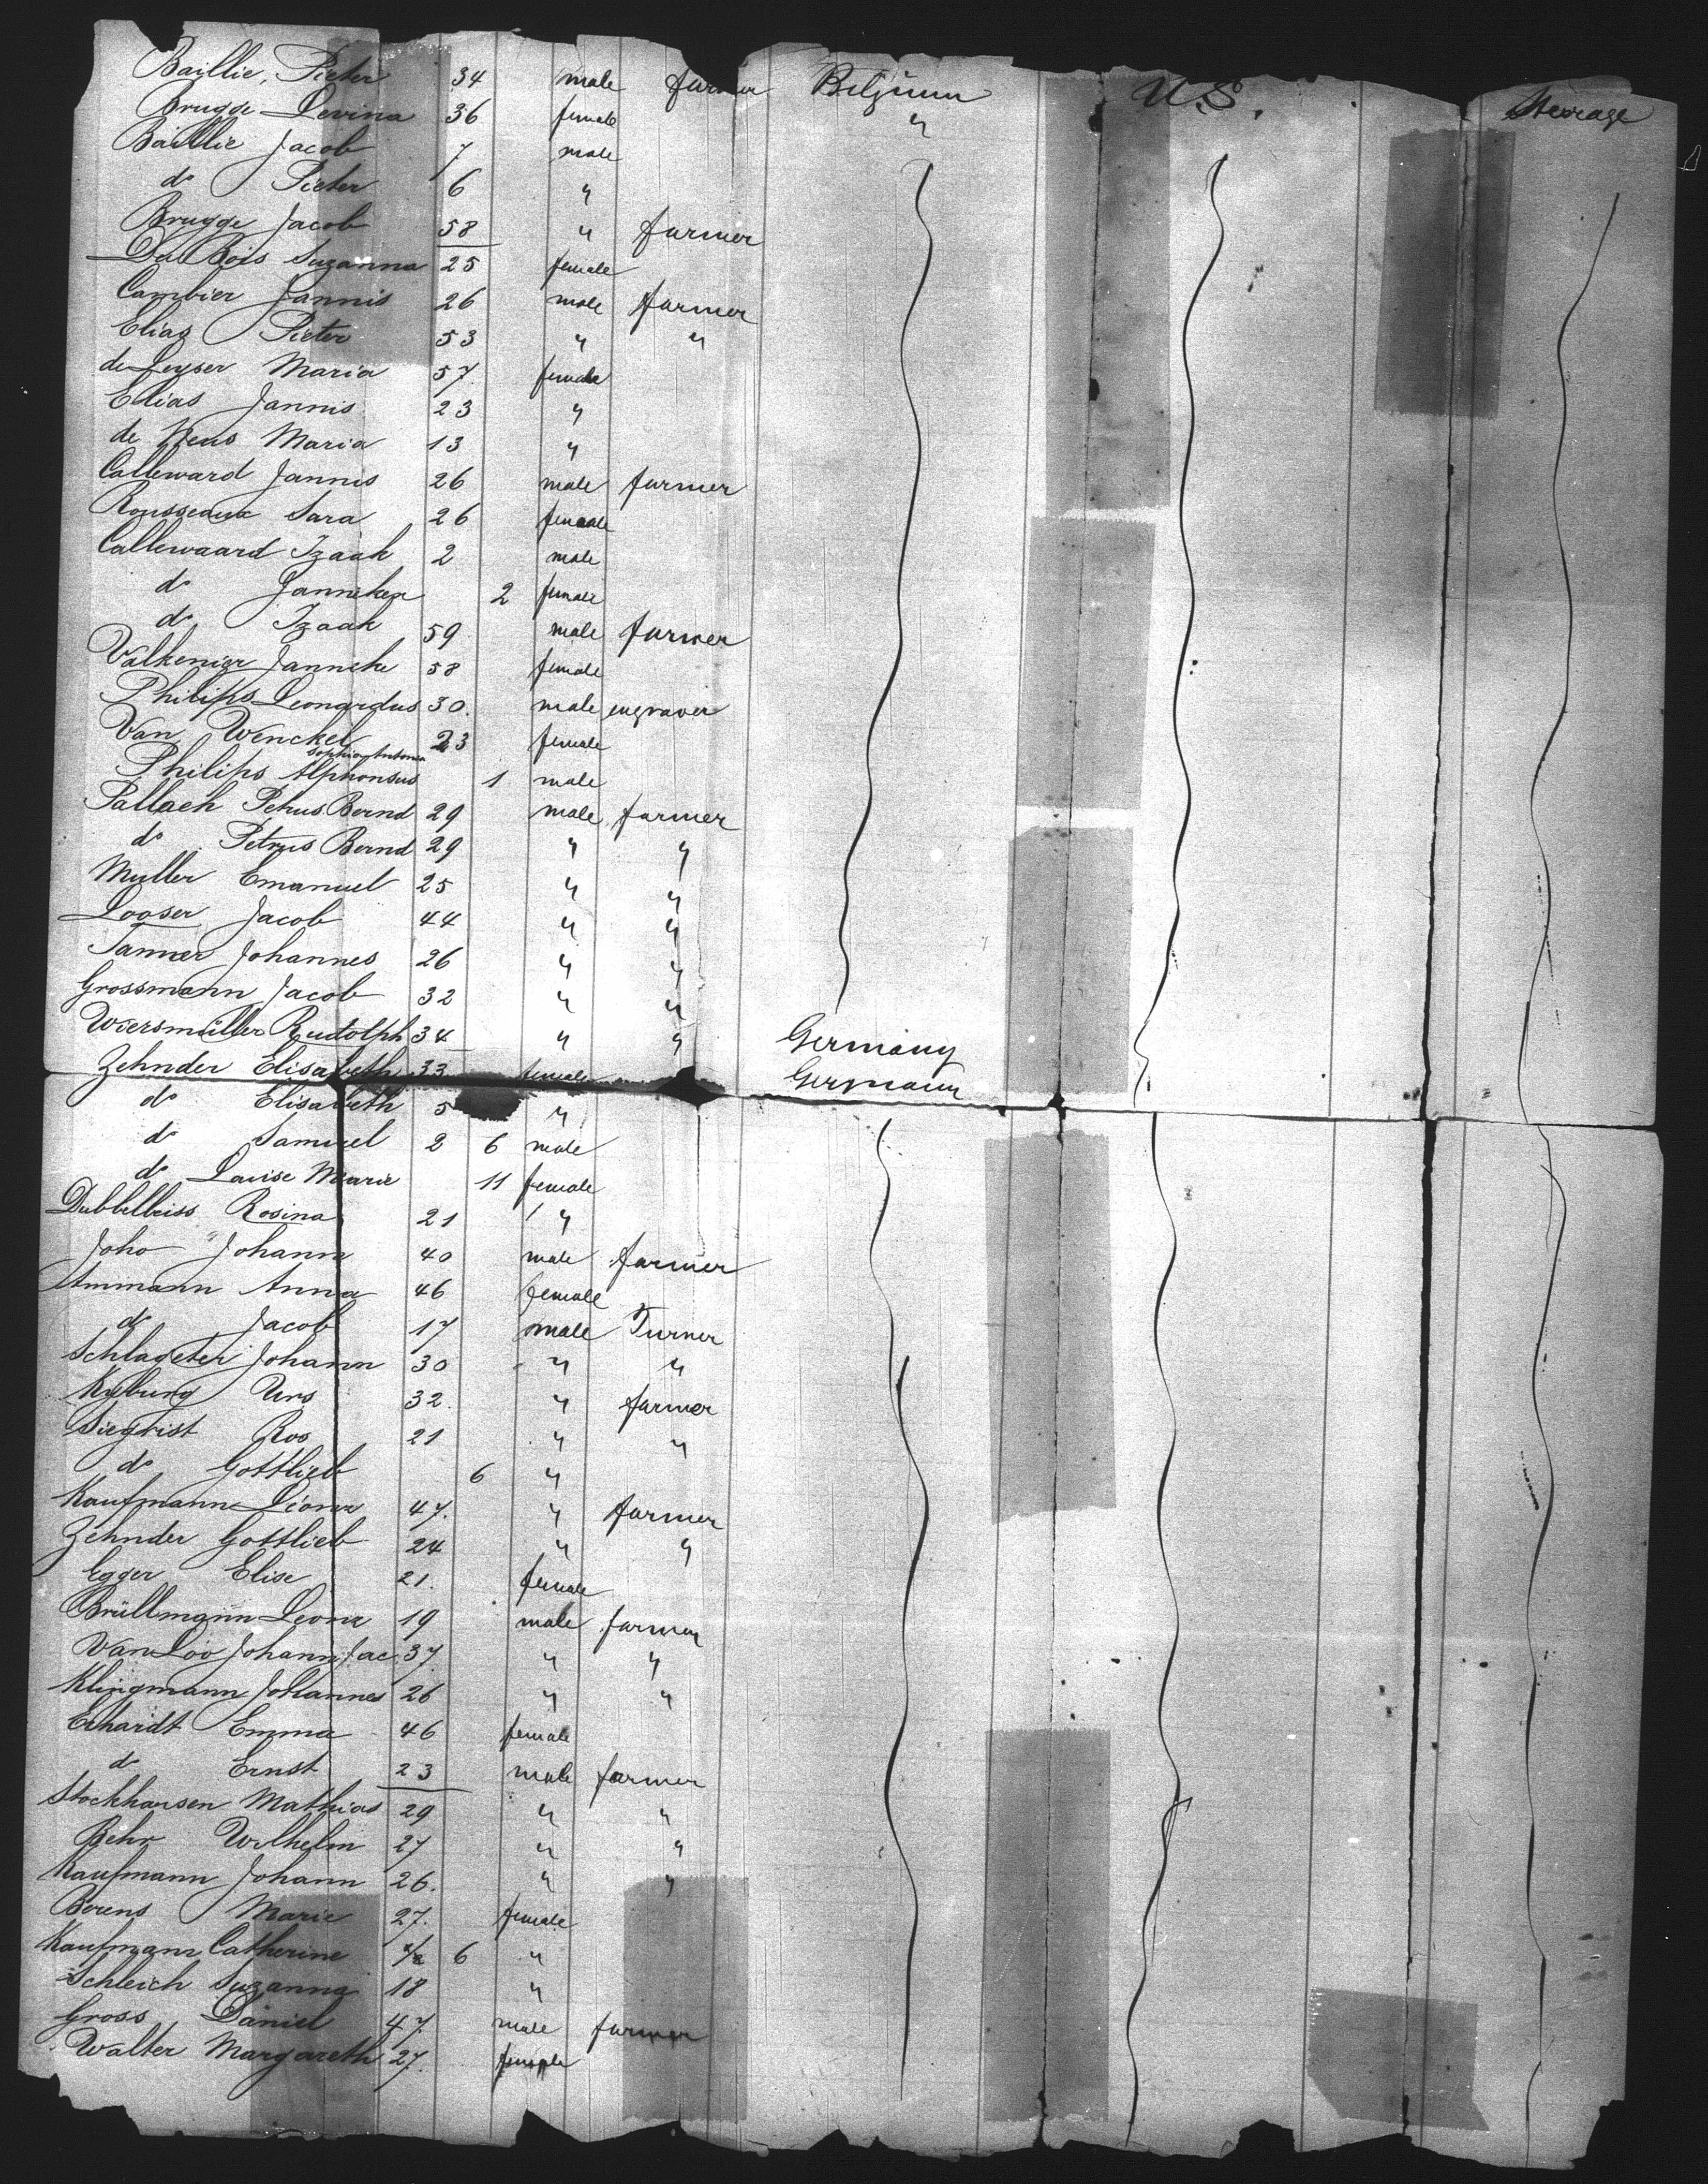 Baillie, Pieter 34 male farmer Belgium U.S. Steerage
Brugge Levina 36 female "
Baillie Jacob 7 male
do Pieter 6 "
Brugge Jacob 58 " farmer
Du Bois Suzanna 25 female
Cambier Jannis 26 male farmer
Elias Pieter 53 " "
de Leyser Maria 57 female
Elias Jannis 23 "
de Neus Maria 13 "
Calleward Jannis 26 male farmer
Rousseaux Sara 26 female
Callewaard Izaak 2 male
do Janneken 2 female
do Izaak 59 male farmer
Valkenier Janneke 58 female
Philips Leonardus 30 male engraver
Van Wenckel Sophia Antonia 23 female
Philips Alphonsus 1 male
Pallach Petrus Bernd 29 male farmer
do Petrus Bernd 29 " "
Muller Emanuel 25 " "
Looser Jacob 44 " "
Tanner Johannes 26 " "
Grossmann Jacob 32 " "
Wiersmüller Rudolph 34 " " Germany
Zehnder Elisabeth 33 female Germany
do Elisabeth 5 "
do Samuel 2 6 male
do Louise Marie 11 female
Dubbelbeiss Rosina 21 "
Joho Johann 40 male farmer
Ammann Anna 46 female
do Jacob 17 male Turner
Schlageter Johann 30 " "
Kyburg Urs 32 " farmer
Siegrist Ros 21 " "
do Gottlieb 6 "
Kaufmann Leonz 47 " farmer
Zehnder Gottlieb 24 " "
Egger Elise 21 female
Brüllmann Leonz 19 male farmer
Van Loo Johann Jac 37 " "
Klingmann Johannes 26 " "
Erhardt Emma 46 female
do Ernst 23 male farmer
Stockhausen Mathias 29 " "
Behr Wilhelm 27 " "
Kaufmann Johann 26 " "
Berens Marie 27 female
Kaufmann Catherine 6 "
Schleich Suzanna 18 "
Gross Daniel 47 male farmer
Walter Margareth 27 female